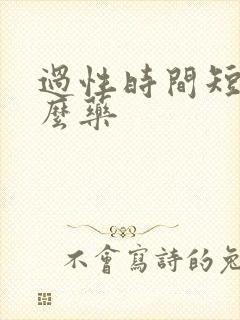 過性時間短
麼藥
不會寫詩的兔